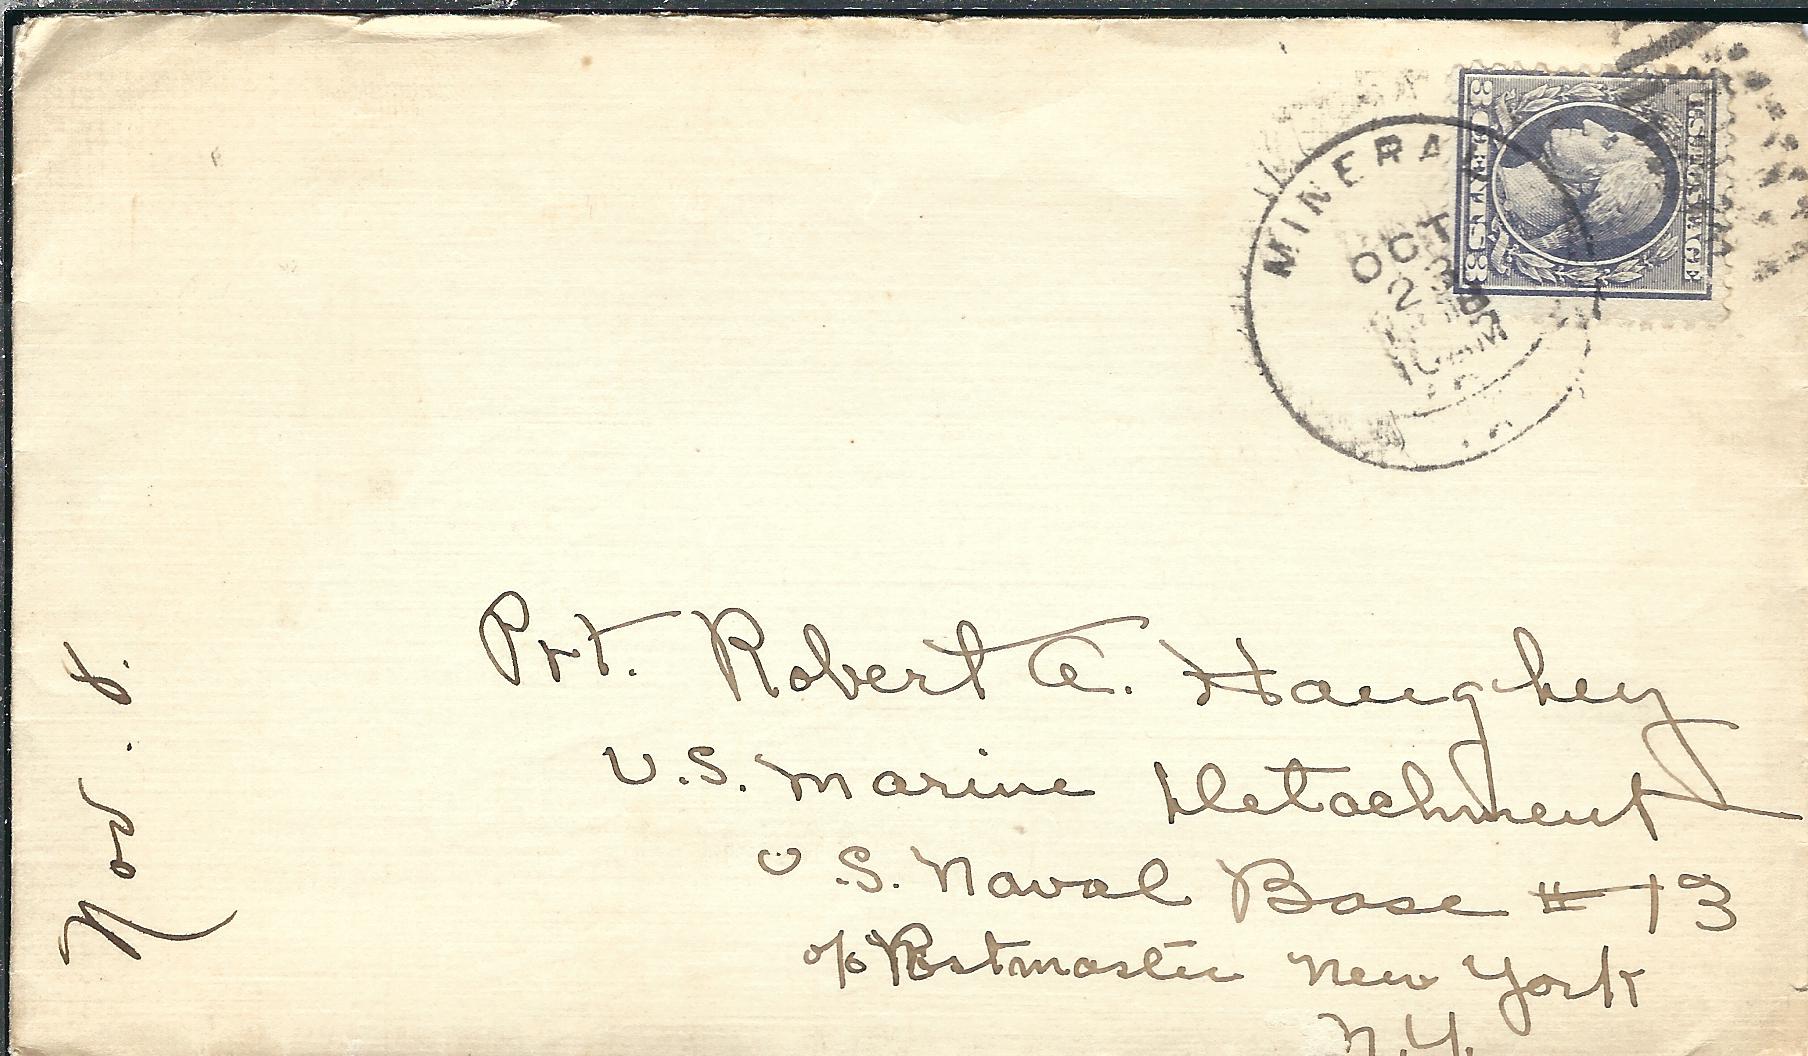 U.S. POSTAGE
3 CENTS 3
MINERAL
OCT
23
10 AM
Pvt. Robert A. Haughey
U.S. Marine Detachment
U.S. Naval Base # 13
c/o Postmaster New York
N.Y.
Nov. 8.